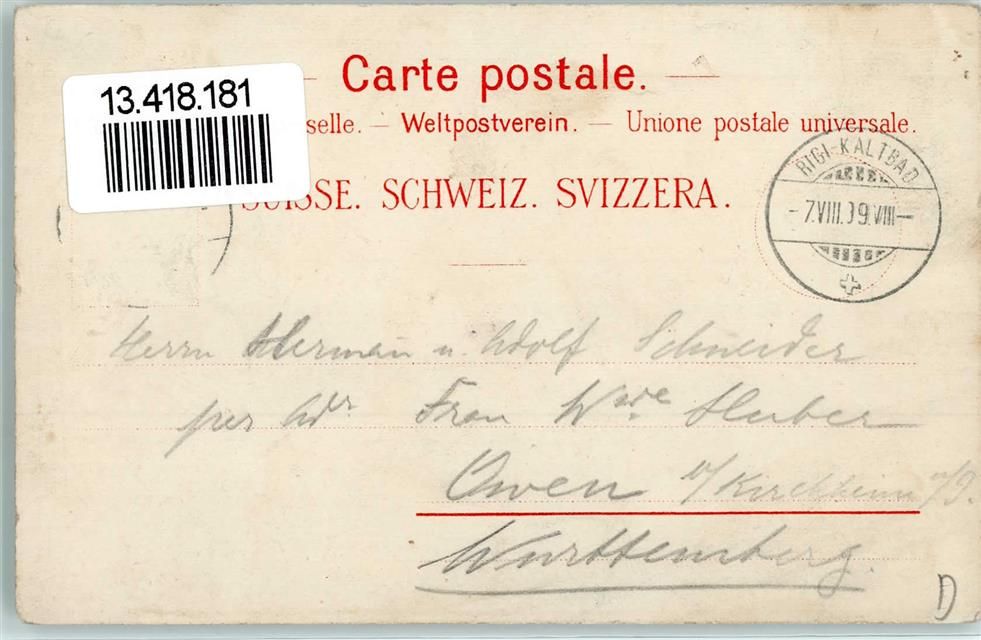 Carte postale.
13.418.181
selle. — Weltpostverein. — Unione postale universale.
SUISSE. SCHWEIZ. SVIZZERA.
RIGI-KALTBAD
-7.VIII.09.VIII-
Herrn Herman u. Adolf Schneider
per Adr. Frau Wwe. Huber
Owen b/Kirchheim
Württemberg.
D